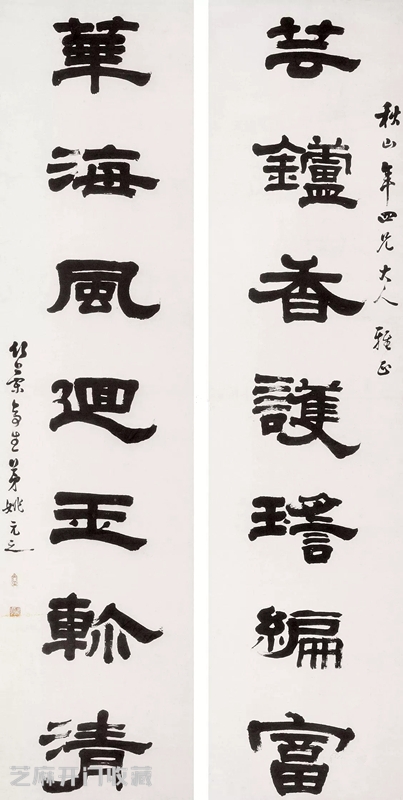 秋山年四兄大人雅正
芸鑪香護瑤編富
華海風迴玉軫清
竹葉亭生弟姚元之
芝麻开门收藏